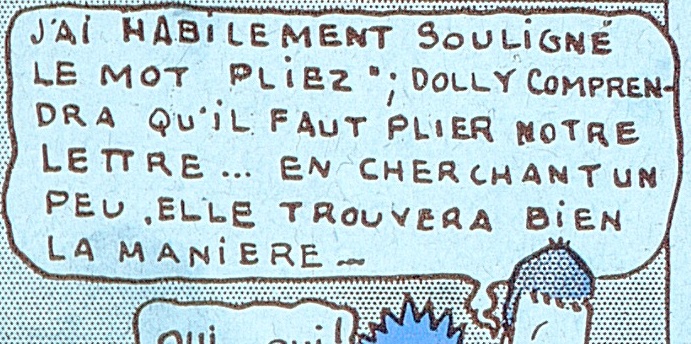 J'AI HABILEMENT SOULIGNÉ
LE MOT PLIEZ"; DOLLY COMPREN-
DRA QU'IL FAUT PLIER NOTRE
LETTRE... EN CHERCHANT UN
PEU, ELLE TROUVERA BIEN
LA MANIERE...
OUI OUI!